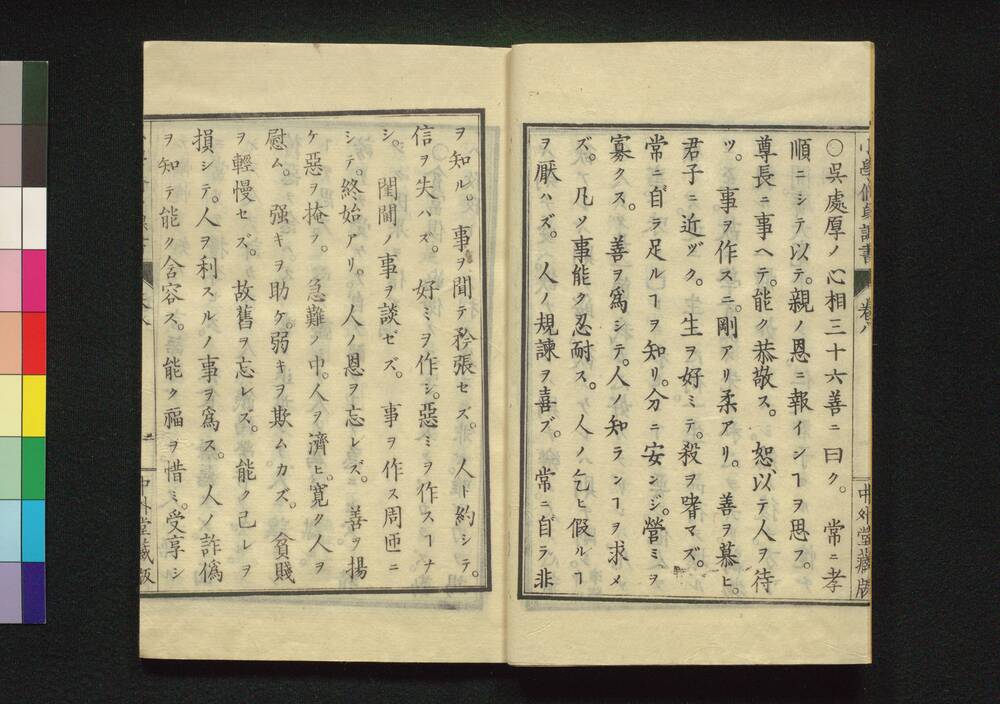 小學修身訓書
卷八
中外堂藏版
○吳處厚ノ心相三十六善ニ曰ク。 常ニ孝
順ニシテ以テ。親ノ恩ニ報インヿヲ思フ。
尊長ニ事ヘテ。能ク恭敬ス。 恕以テ人ヲ待
ツ。 事ヲ作スニ。剛アリ柔アリ。 善ヲ慕ヒ。
君子ニ近ヅク。 生ヲ好ミテ。殺ヲ嗜マズ。
常ニ自ラ足ルヿヲ知リ。分ニ安ンジ。營ミヲ
寡クス。 善ヲ爲シテ。人ノ知ランヿヲ求メ
ズ。 凡ソ事能ク忍耐ス。 人ノ乞ヒ假ルヿ
ヲ厭ハズ。 人ノ規諫ヲ喜ブ。 常ニ自ラ非
ヲ知ル。 事ヲ聞テ矜張セズ。 人ト約シテ。
信ヲ失ハズ。 好ミヲ作シ。惡ミヲ作スヿナ
シ。 閨閫ノ事ヲ談ゼズ。 事ヲ作ス周匝ニ
シテ。終始アリ。 人ノ恩ヲ忘レズ。 善ヲ揚
ケ惡ヲ掩フ。 急難ノ中。人ヲ濟ヒ。寛ク人ヲ
慰ム。 强キヲ助ケ。弱キヲ欺ムカズ。 貧賤
ヲ輕慢セズ。 故舊ヲ忘レズ。 能ク己レヲ
損シテ。人ヲ利スルノ事ヲ爲ス。 人ノ詐僞
ヲ知テ能ク含容ス。 能ク福ヲ惜ミ。受享シ
中外堂藏版